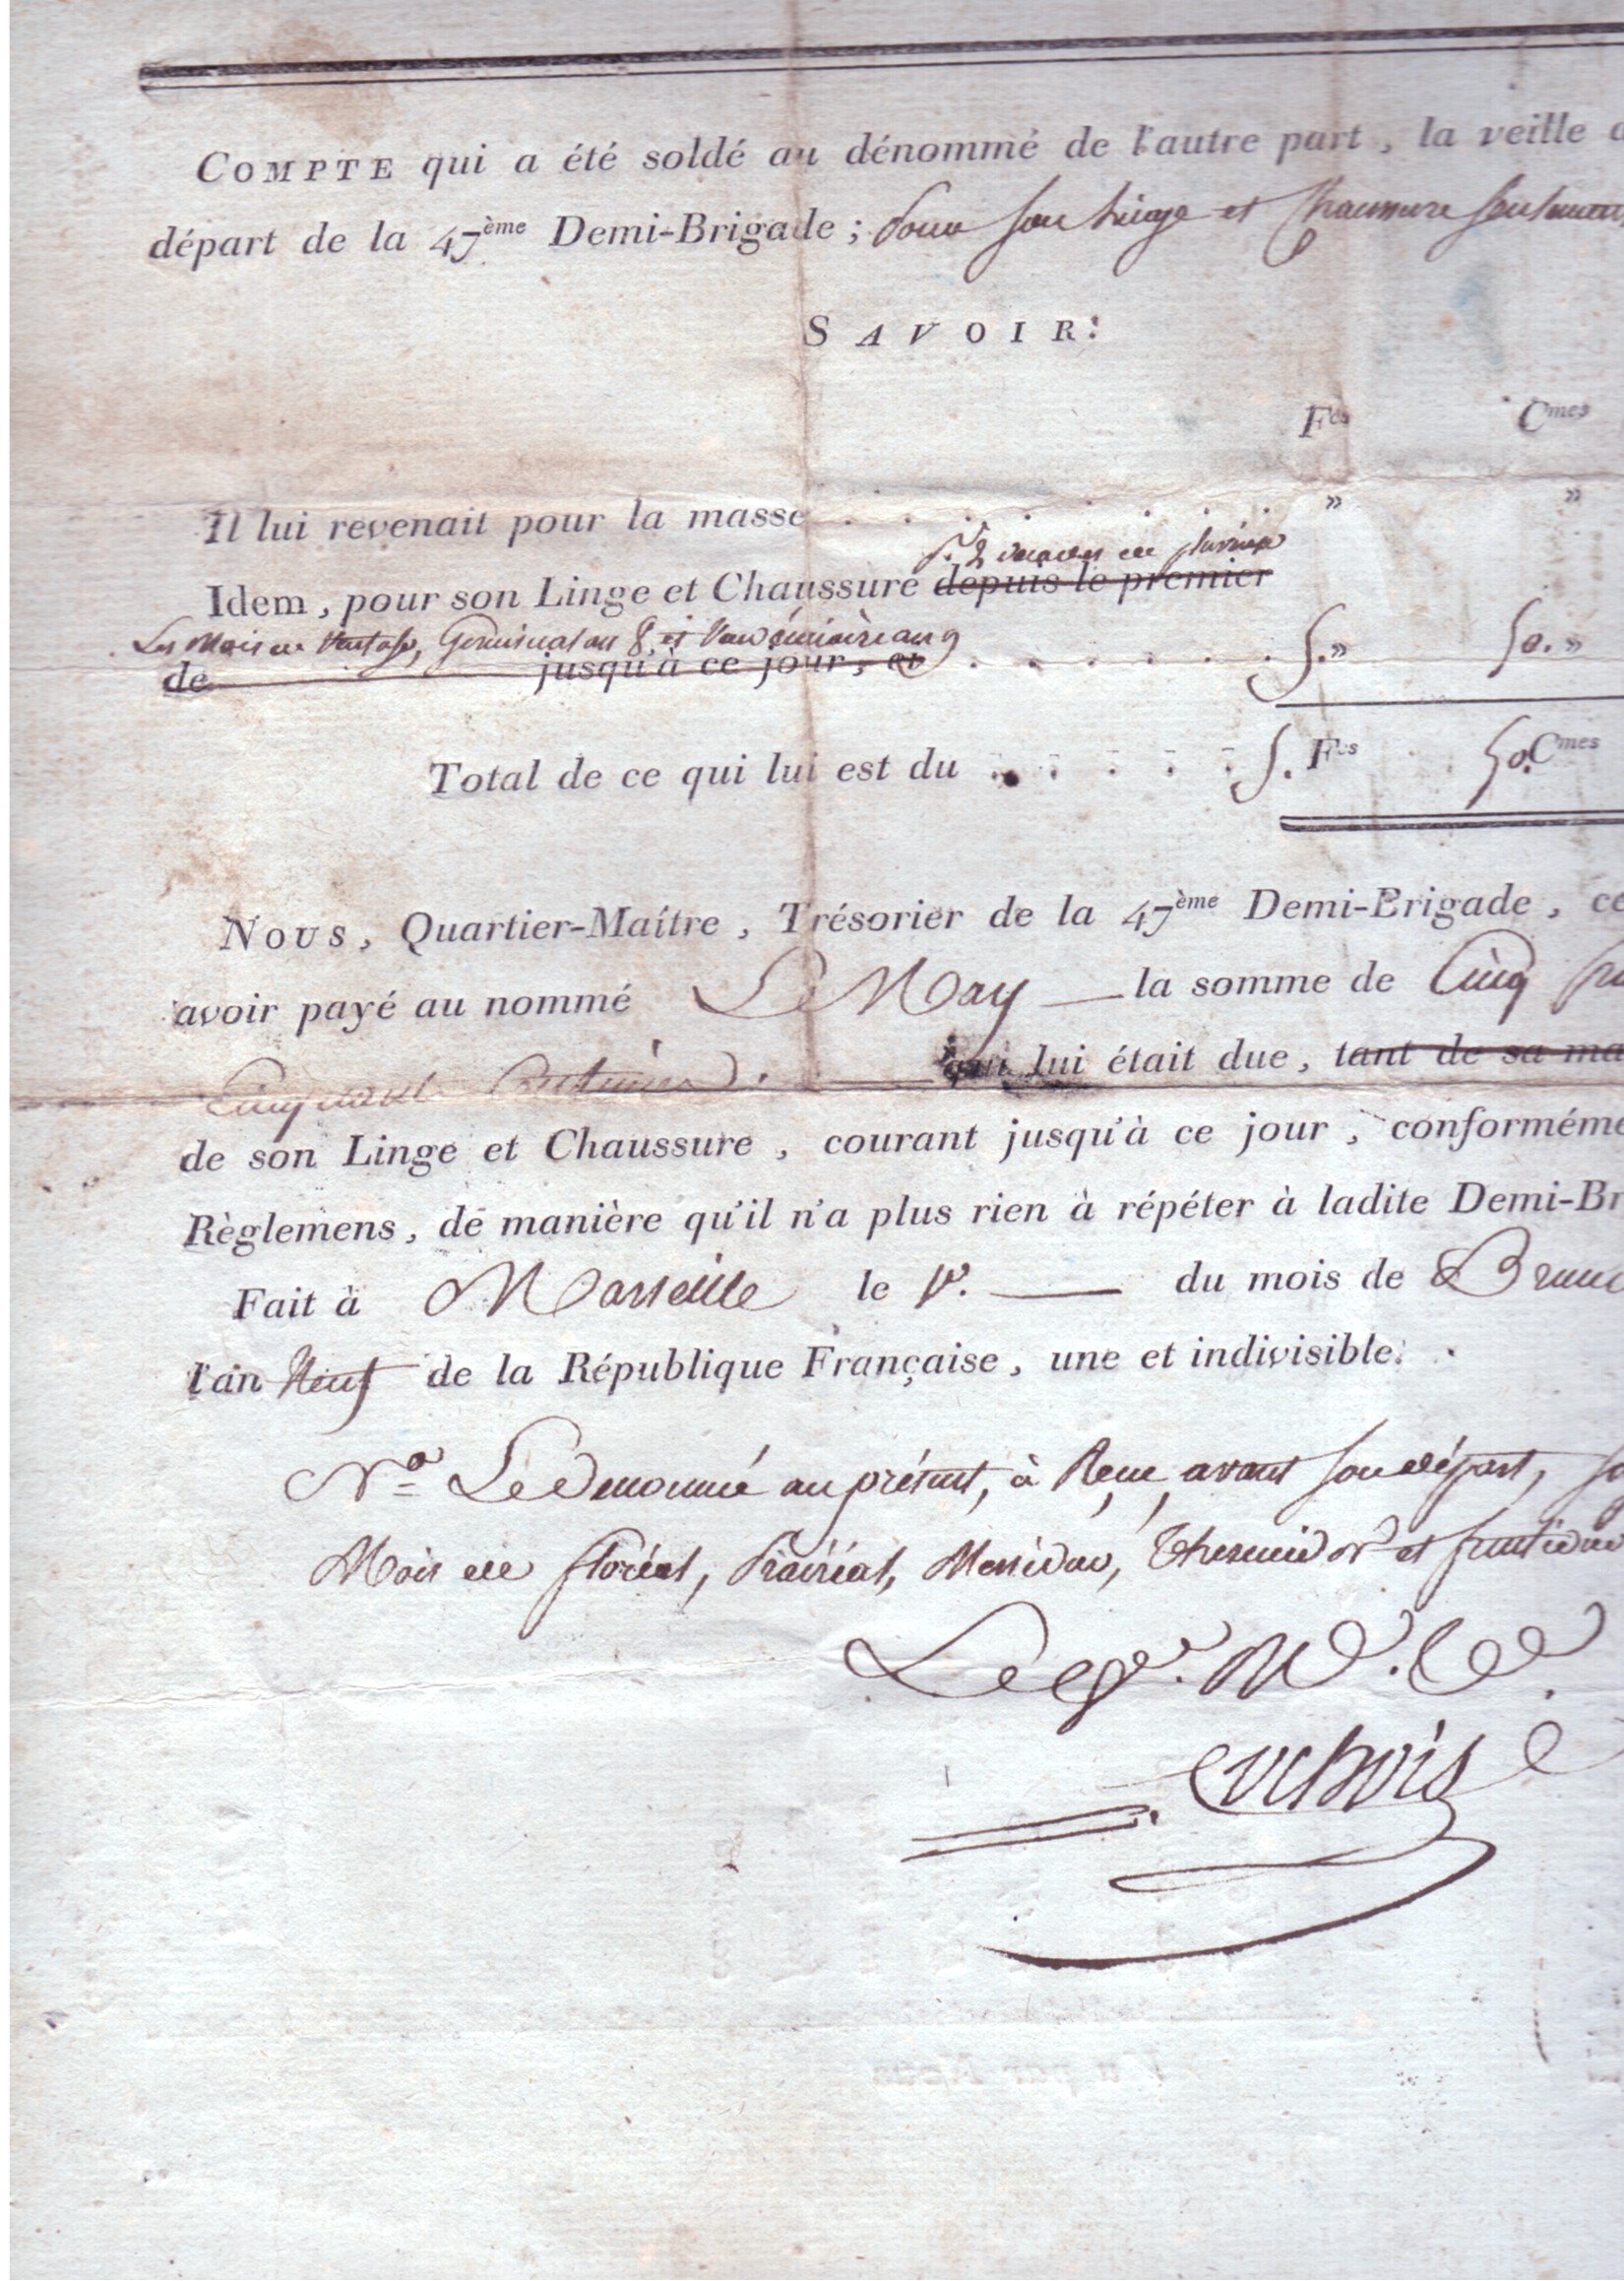 COMPTE qui a été soldé au dénommé de l'autre part, la veille d
départ de la 47ème Demi-Brigade ; pour son Linge et Chaussure seulement,
SAVOIR:
Fcs Cmes
Il lui revenait pour la masse . . . . . . . . » »
pr. 2 décades de pluviose
Idem, pour son Linge et Chaussure depuis le premier
Les Mois de Ventose, Germinal an 8, et Vendémiaire an 9
de jusqu'à ce jour, et . . . . . . 5.» 50.»
Total de ce qui lui est du . . . . . 5. Fcs 50. Cmes
NOUS, Quartier-Maître, Trésorier de la 47ème Demi-Brigade, ce
avoir payé au nommé Le May — la somme de Cinq fr
Cinquante Centimes. — qui lui était due, tant de sa ma
de son Linge et Chaussure, courant jusqu'à ce jour, conforméme
Règlemens, de manière qu'il n'a plus rien à répéter à ladite Demi-Br
Fait à Marseille le 1er. — du mois de Brum
l'an Neuf de la République Française, une et indivisible.
Na Le Denommé au présent, à Reçu, avant son départ, so
Mois de floréal, Prairéal, Messidor, Thermidor et fructidor
Le qr. Me.